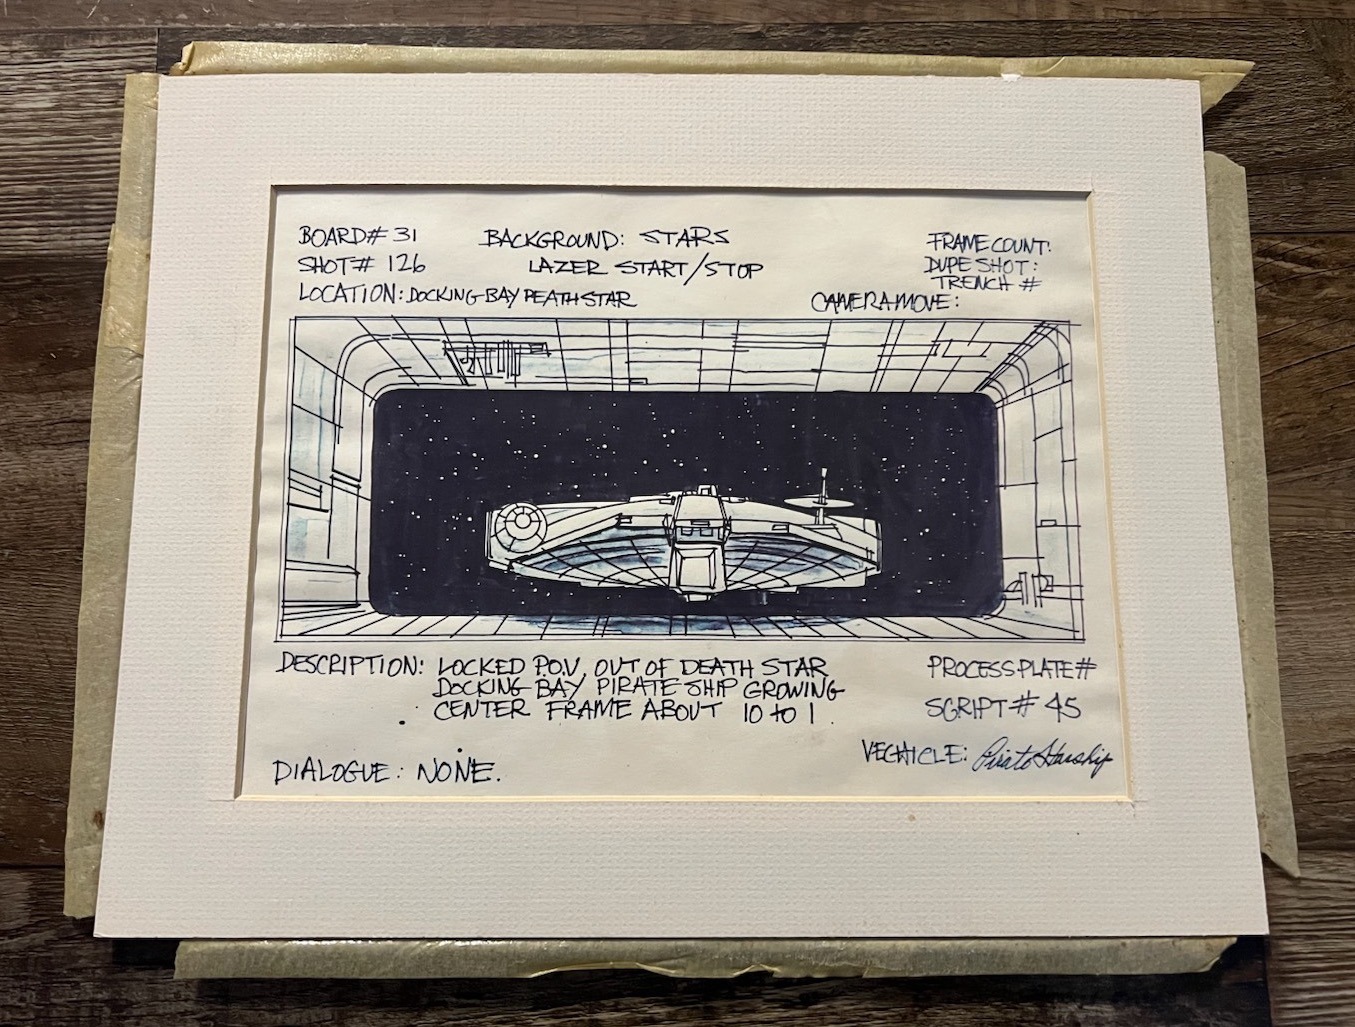 BOARD# 31
SHOT# 126
LOCATION: DOCKING BAY DEATH STAR
BACKGROUND: STARS
LAZER START/STOP
FRAME COUNT:
DUPE SHOT:
TRENCH #
CAMERA MOVE:
DESCRIPTION: LOCKED P.O.V. OUT OF DEATH STAR
DOCKING BAY PIRATE SHIP GROWING
CENTER FRAME ABOUT 10 to 1.
PROCESS PLATE#
SCRIPT# 45
VECHICLE: Pirate Starship
DIALOGUE: NONE.